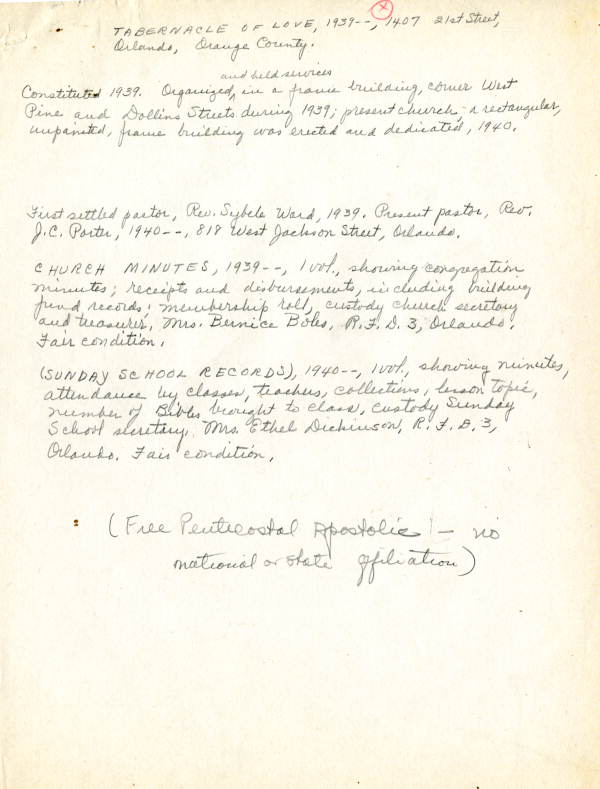 TABERNACLE OF LOVE, 1939--, 1407 21st Street,
Orlando, Orange County.
and held services
Constituted 1939. Organized in a frame building, corner West
Pine and Dollins Streets during 1939; present church, a rectangular,
unpainted, frame building was erected and dedicated, 1940.
First settled pastor, Rev. Sybele Ward, 1939. Present pastor, Rev.
J.C. Porter, 1940--, 818 West Jackson Street, Orlando.
CHURCH MINUTES, 1939--, 1 vol., showing congregation
minutes; receipts and disbursements, including building
fund records; membership roll, custody church secretary
and treasurer, Mrs. Bernice Boles, R.F.D. 3, Orlando.
Fair condition.
(SUNDAY SCHOOL RECORDS), 1940--, 1 vol., showing minutes,
attendance by classes, teachers, collections, lesson topic,
number of Bibles brought to class, custody Sunday
School secretary, Mrs. Ethel Dickinson, R.F.D. 3,
Orlando. Fair condition.
(Free Pentecostal Apostolic - no
national or state affiliation)